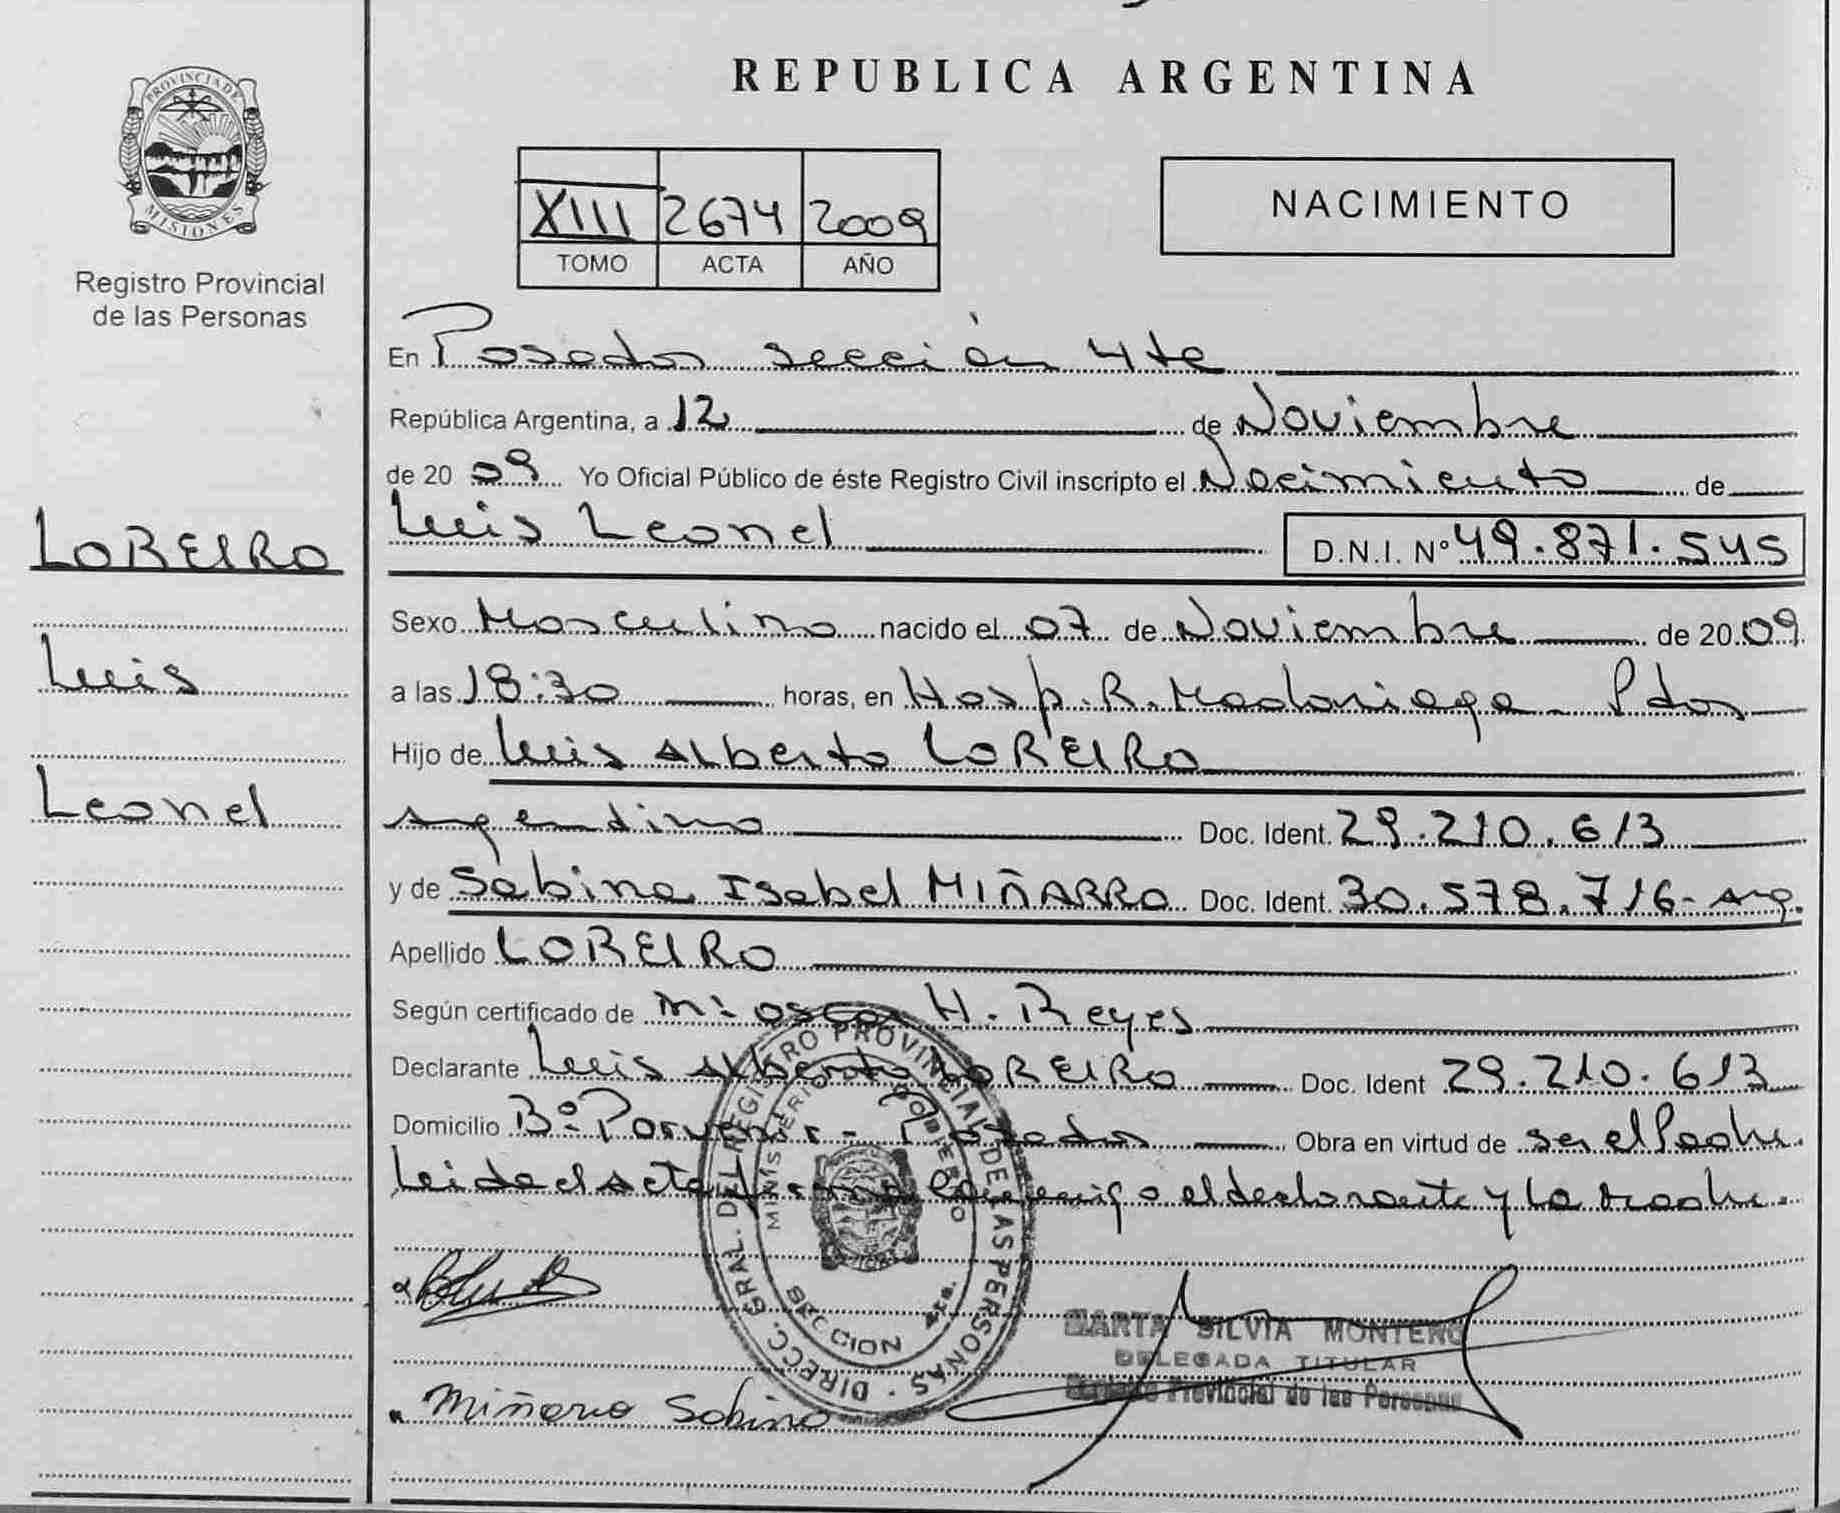 PROVINCIA DE
MISIONES
Registro Provincial
de las Personas
LOREIRO
Luis
Leonel
REPUBLICA ARGENTINA
XIII 2674 2009
TOMO ACTA AÑO
NACIMIENTO
En Posadas sección 4ta
República Argentina, a 12 de Noviembre
de 20 09 Yo Oficial Público de éste Registro Civil inscripto el Nacimiento de
Luis Leonel D.N.I. Nº 49.871.545
Sexo Masculino nacido el 07 de Noviembre de 20 09
a las 18:30 horas, en Hosp. R. Madariaga - Pdas
Hijo de Luis Alberto LOREIRO
Argentino Doc. Ident. 29.210.613
y de Sabina Isabel MIÑARRO Doc. Ident. 30.578.716 - Arg.
Apellido LOREIRO
Según certificado de M: Oscar H. Reyes
Declarante Luis Alberto LOREIRO Doc. Ident 29.210.613
Domicilio Bº Porvenir - Posadas Obra en virtud de ser el Padre.
Leida el Acta firma conmigo el declarante y la Madre.
DIRECC. GRAL. DEL REGISTRO PROVINCIAL DE LAS PERSONAS
MINISTERIO GOBIERNO
SECCION 4ta.
MARTA SILVIA MONTERO
DELEGADA TITULAR
Registro Provincial de las Personas
Miñarro Sabina